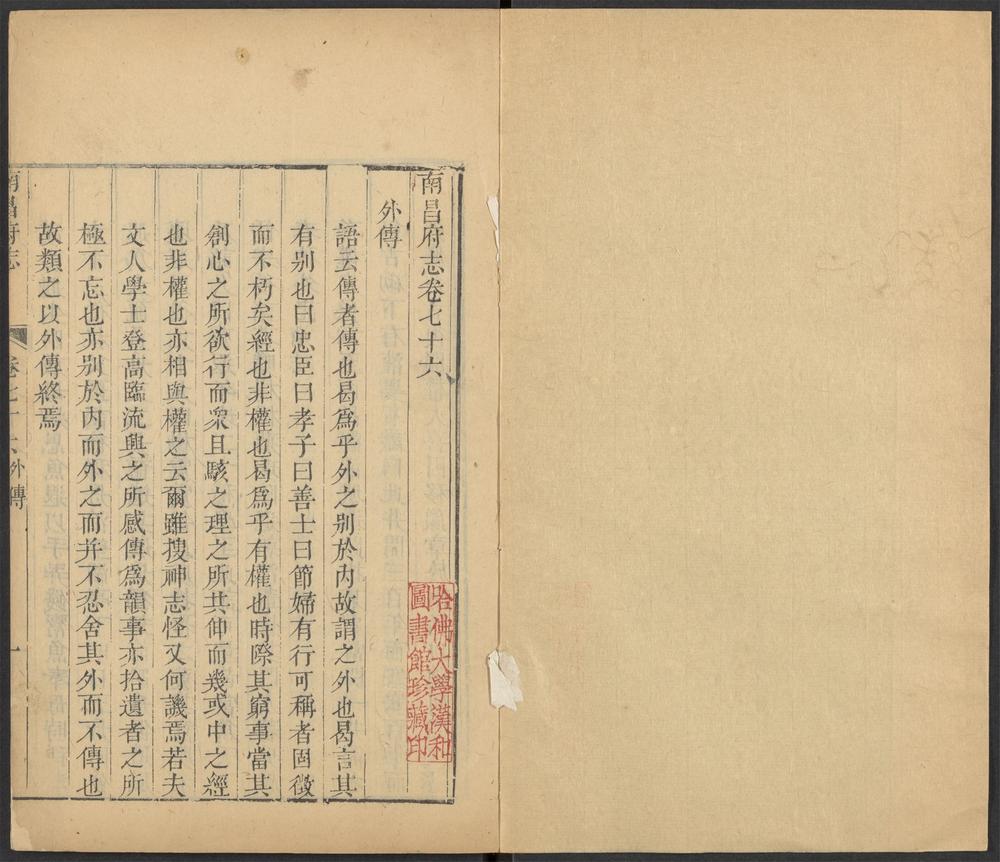 南昌府志卷七十六
外傳
語云傳者傳也曷爲乎外之別於內故謂之外也曷言其
有别也曰忠臣曰孝子曰善士曰節婦有行可稱者固徵
而不朽矣經也非權也曷爲乎有權也時際其窮事當其
創心之所欲行而衆且駭之理之所共仰而幾或中之經
也非權也亦相與權之云爾雖搜神志怪又何譏焉若夫
文人學士登高臨流興之所感傳爲韻事亦拾遺者之所
極不忘也亦别於內而外之而并不忍舍其外而不傳也
故類之以外傳終焉
南昌府志
卷七十六外傳
一
哈佛大學漢和
圖書館珍藏印